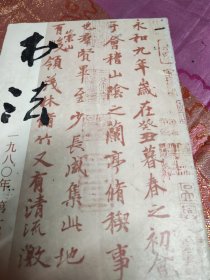 书法
一九八〇年
永和九年歲在癸丑暮春之初
于會稽山陰之蘭亭脩稧事
也羣賢畢至少長咸集此地
有崇山
領茂林脩竹又有清流激